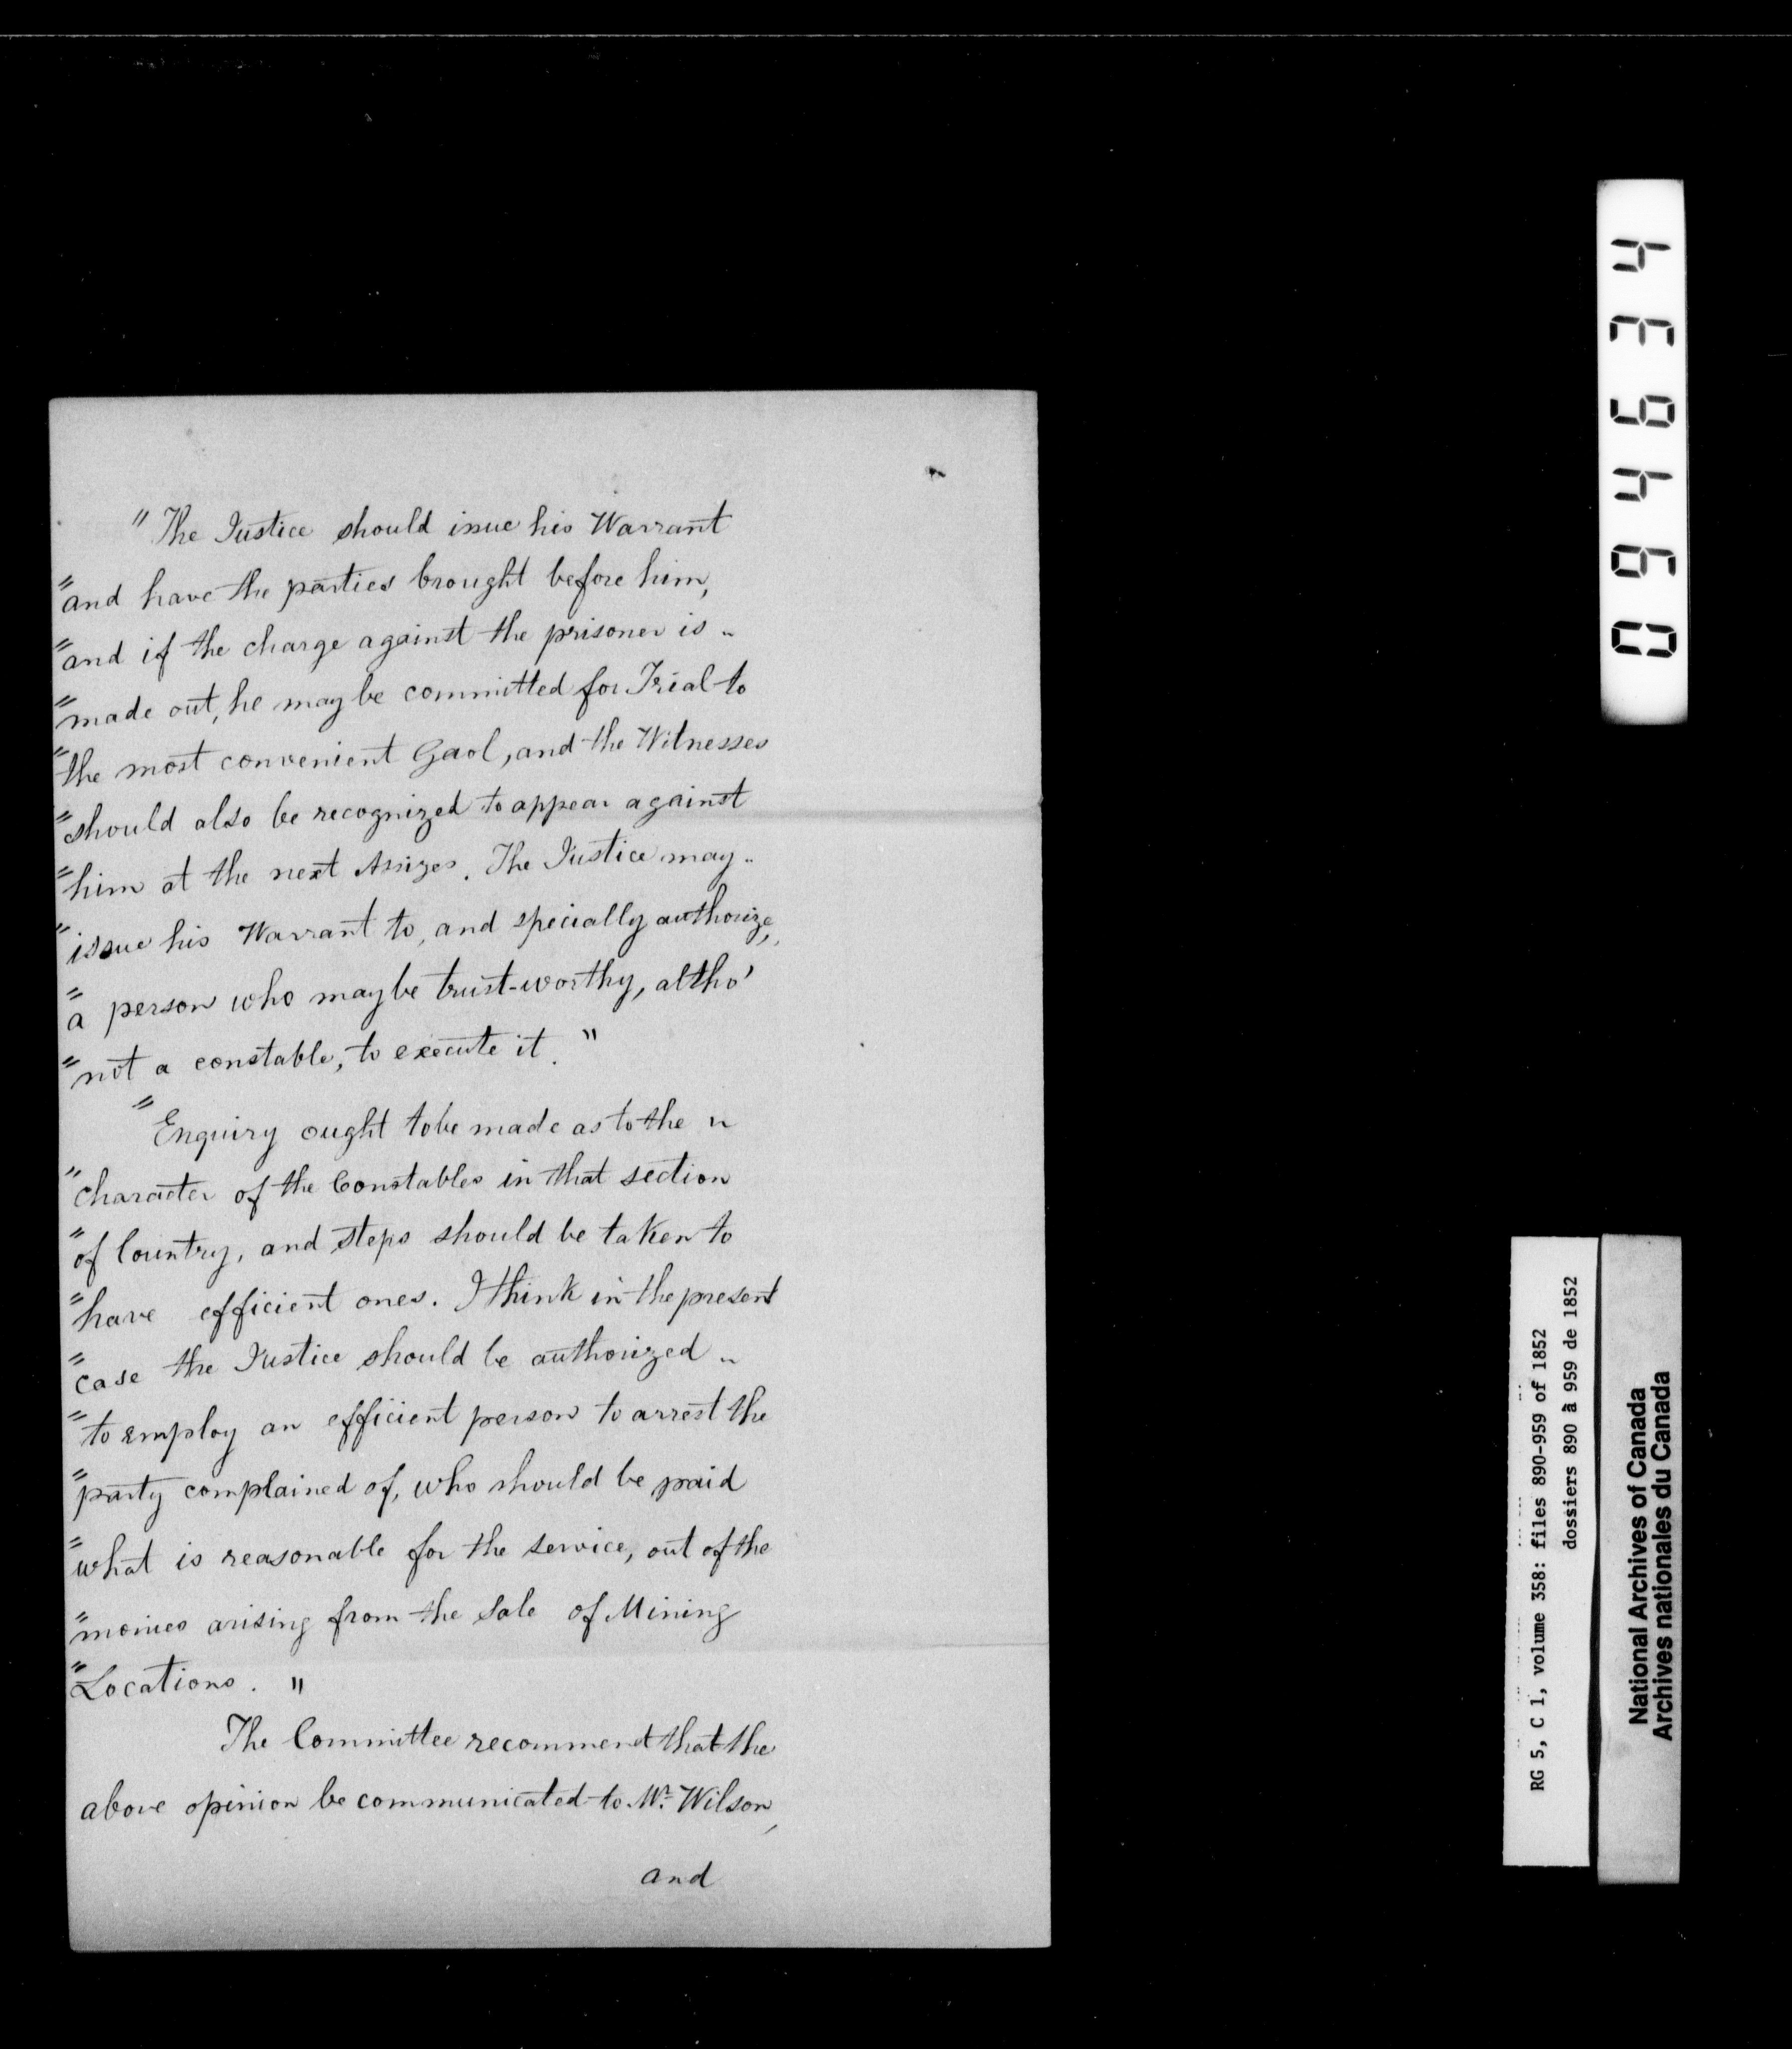 " The Justice should issue his Warrant
" and have the parties brought before him,
" and if the charge against the prisoner is "
" made out, he may be committed for Trial to
" the most convenient Gaol, and the Witnesses
" should also be recognized to appear against
" him at the next Assizes. The Justice may "
" issue his Warrant to, and specially authorize,
" a person who may be trust-worthy, altho'
" not a constable, to execute it. "
" Enquiry ought to be made as to the "
" character of the Constables in that section
" of Country, and steps should be taken to
" have efficient ones. I think in the present
" case the Justice should be authorized "
" to employ an efficient person to arrest the
" party complained of, who should be paid
" what is reasonable for the service, out of the
" monies arising from the Sale of Mining
" Locations. "
The Committee recommend that the
above opinion be communicated to Mr. Wilson,
and
069634
RG 5, C 1, volume 358: files 890-959 of 1852
dossiers 890 à 959 de 1852
National Archives of Canada
Archives nationales du Canada